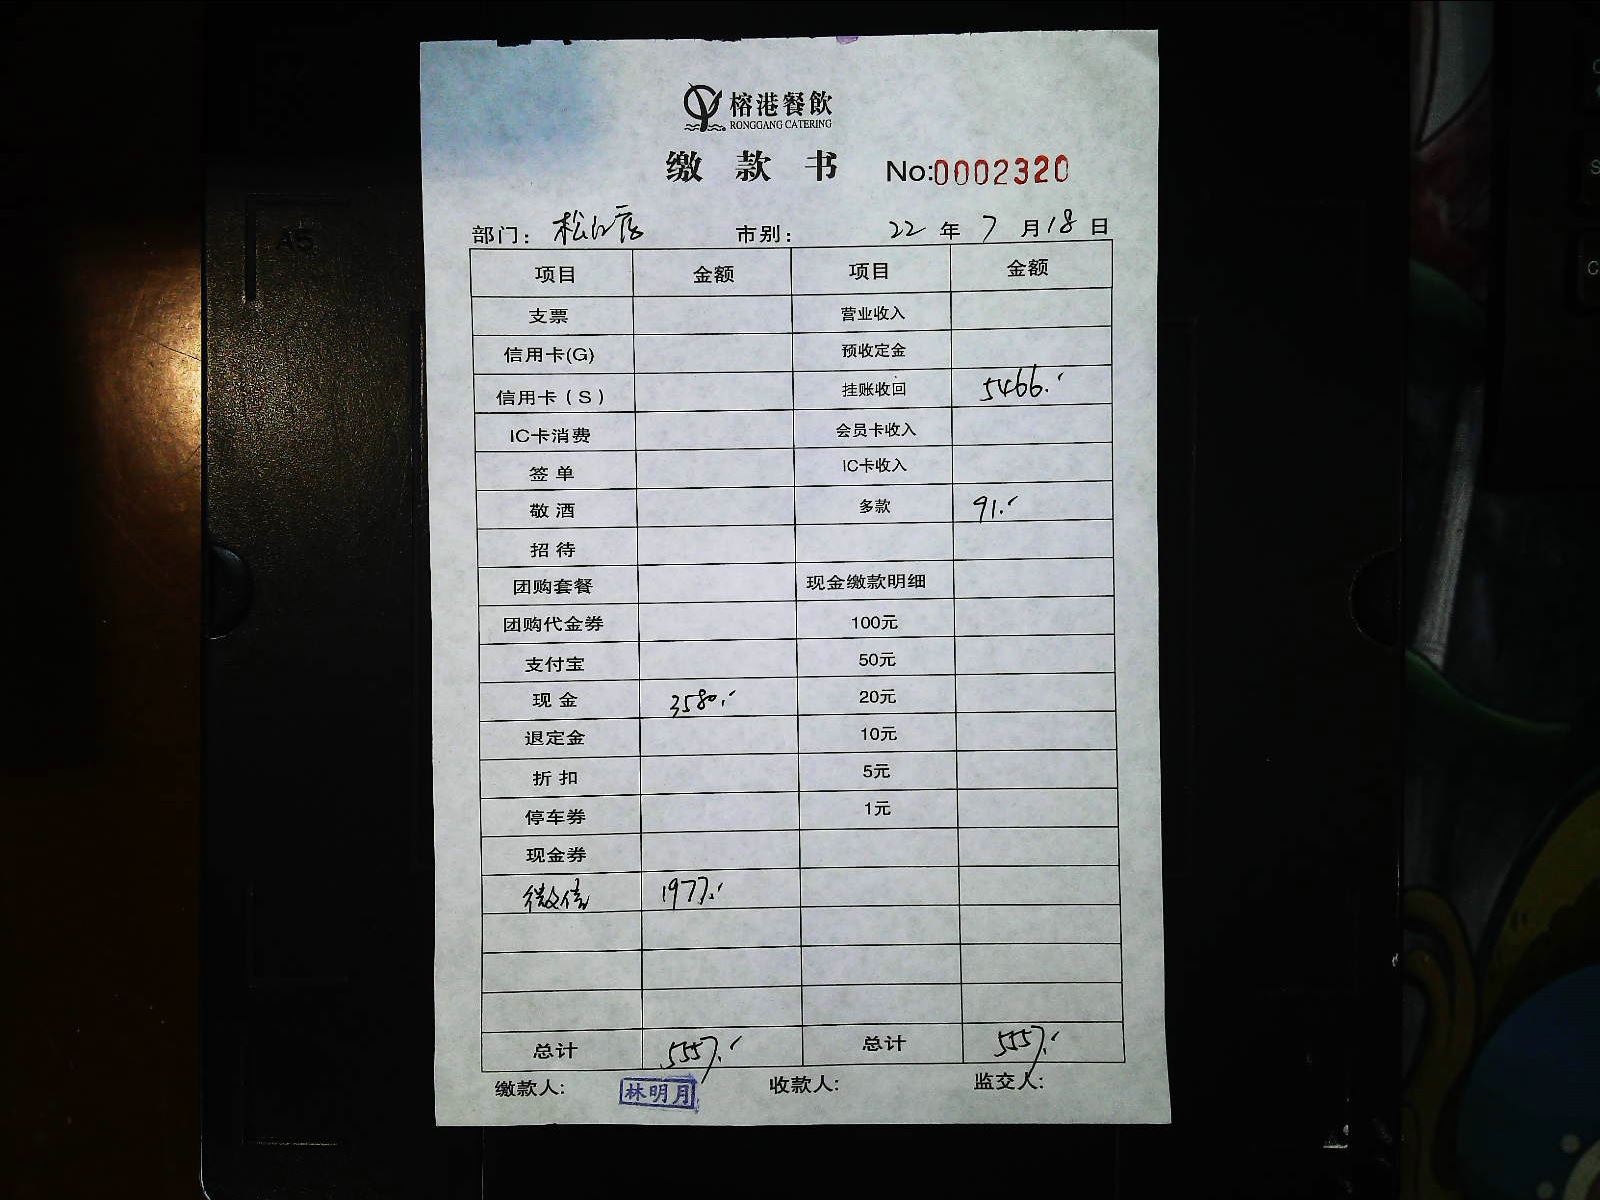 榕港餐飲
RONGGANG CATERING
缴 款 书 No:0002320
部门： 松江店 市别： 22 年 7 月 18 日
项目 金额 项目 金额
支票 营业收入
信用卡(G) 预收定金
信用卡（S） 挂账收回 5466.-
IC卡消费 会员卡收入
签 单 IC卡收入
敬 酒 多款 91.-
招 待
团购套餐 现金缴款明细
团购代金券 100元
支付宝 50元
现 金 3580.- 20元
退定金 10元
折 扣 5元
停车券 1元
现金券
微信 1977.-
总计 5557.- 总计 5557.-
缴款人: 林明月 收款人: 监交人: